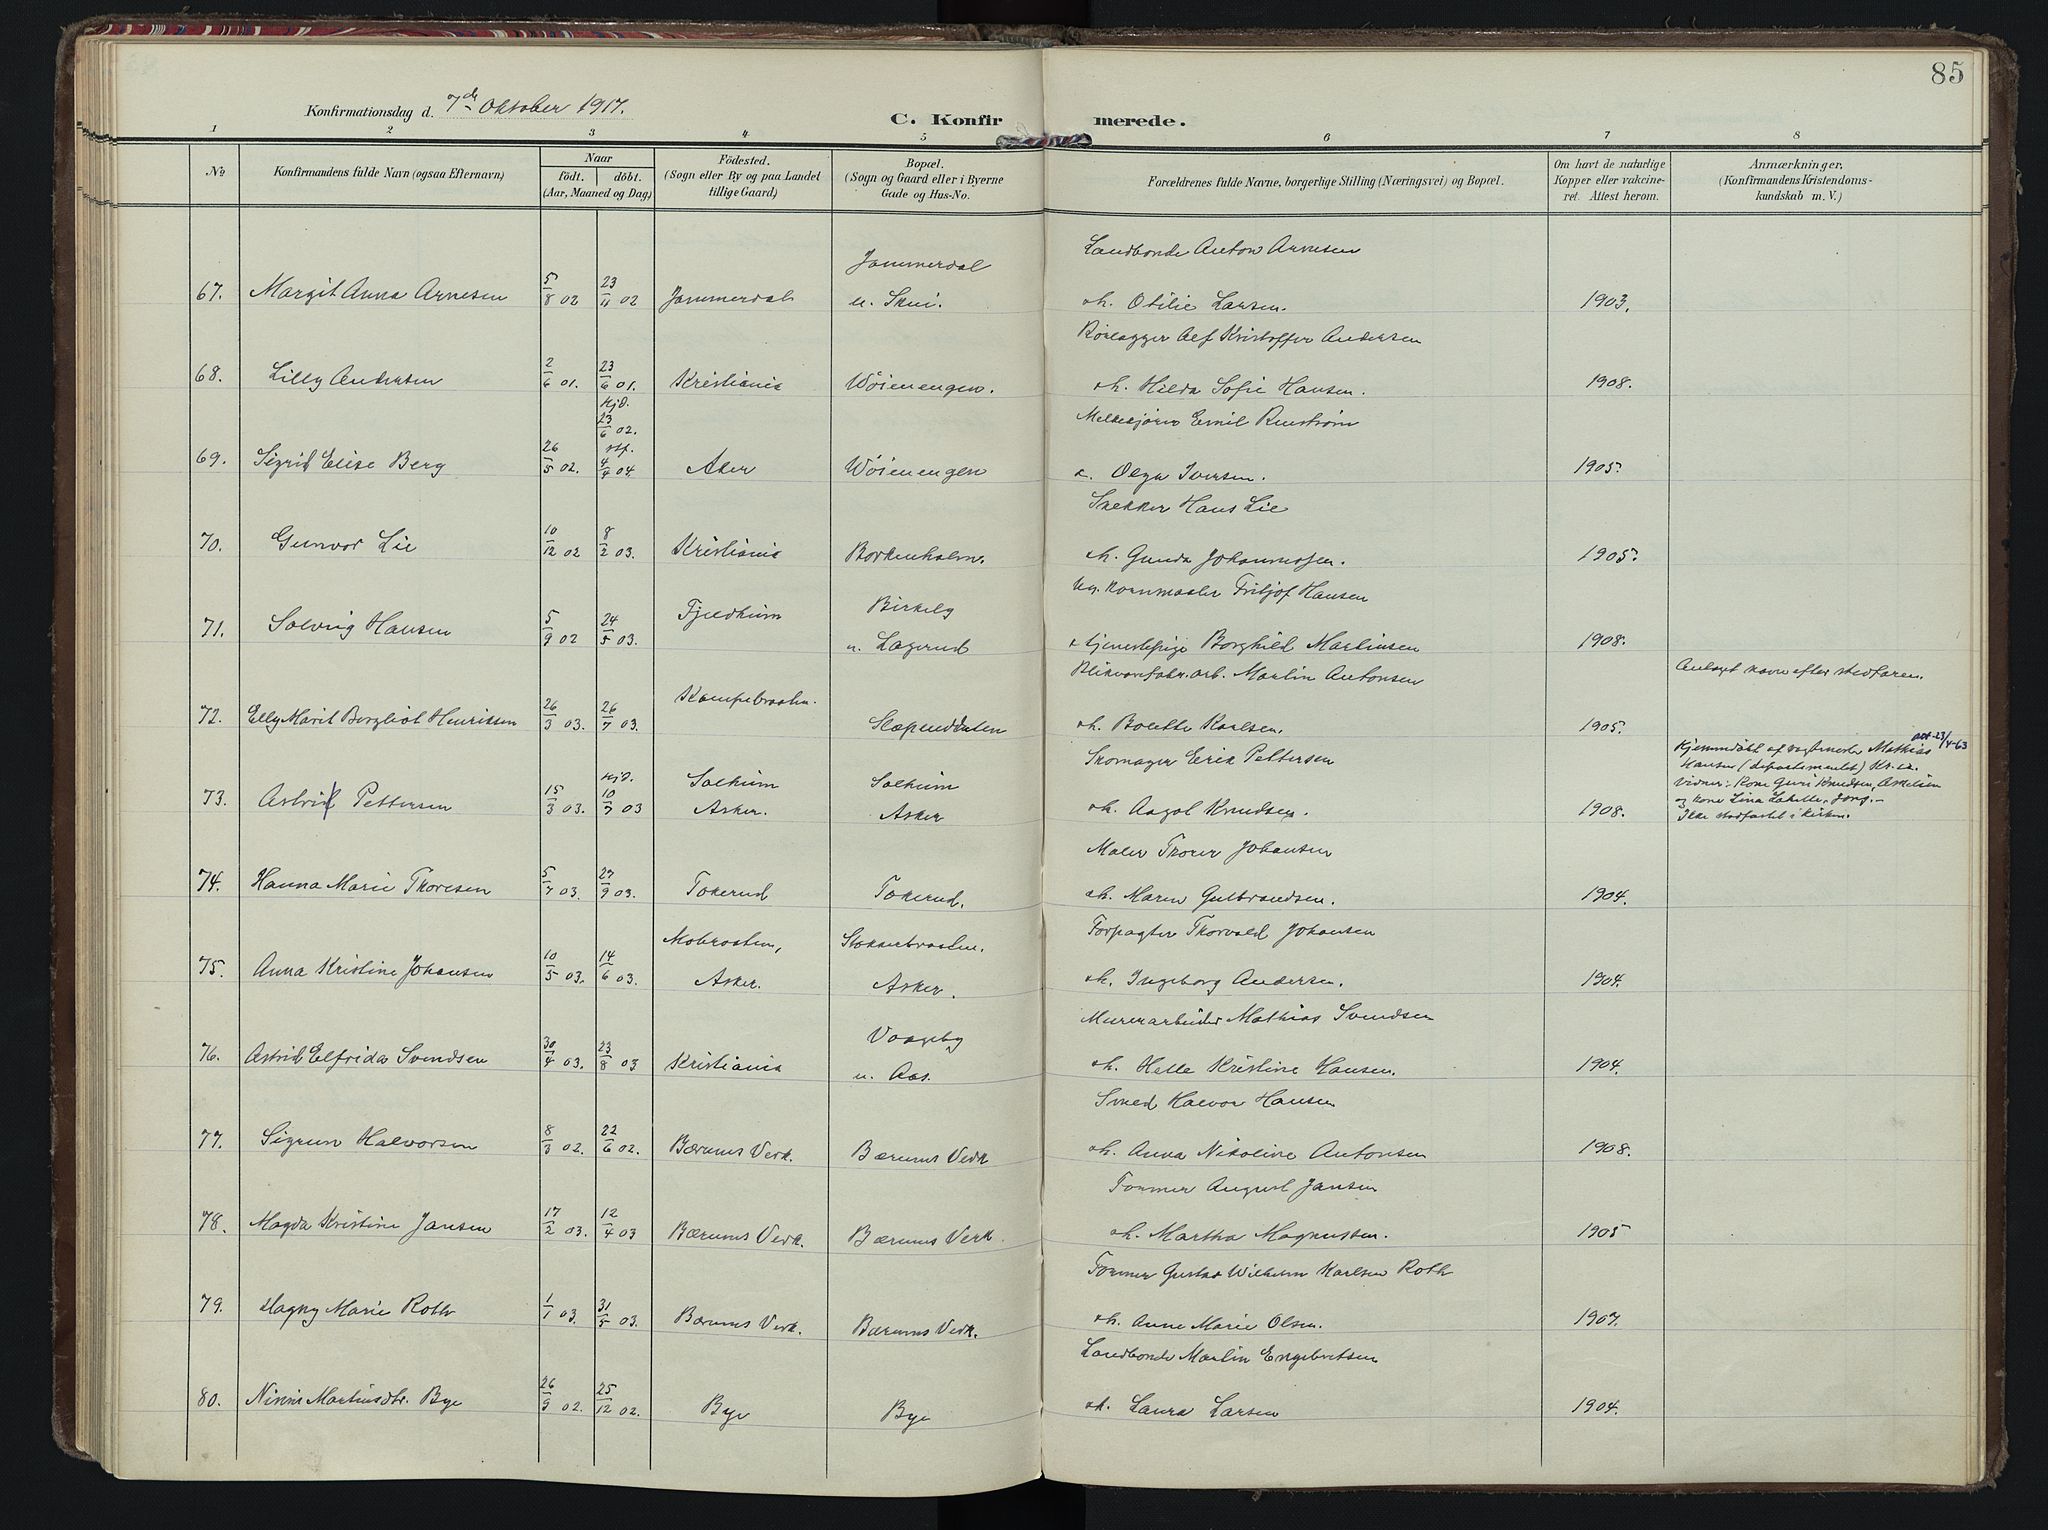 85
Konfirmationsdag d. 7de Oktober 1917.
C. Konfirmerede.
1 2 3 4 5 6 7 8
No
Konfirmandens fulde Navn (ogsaa Efternavn)
Naar
født. døbt.
(Aar, Maaned og Dag)
Födested.
(Sogn eller By og paa Landet
tillige Gaard)
Bopæl.
(Sogn og Gaard eller i Byerne
Gade og Hus-No.
Forældrenes fulde Navne, borgerlige Stilling (Næringsvei) og Bopæl.
Om havt de naturlige
Kopper eller vakcine-
ret. Attest herom.
Anmærkninger,
(Konfirmandens Kristendoms-
kundskab m. V.)
Landbonde Anton Arnesen
67. Margit Anna Arnesen 5/8 02 23/11 02 Jammerdal Jammerdal u. Skui. o h. Otilie Larsen. 1903.
Rørlægger Alf Kristoffer Andersen
68. Lilly Andersen 2/6 01. 23/6 01. Kristiania Wøienengen. o h. Hilda Sofie Hansen. 1908.
Melkekjører Emil Runstrøm
69. Sigrid Elise Berg 26/5 02. hjd. 23/6 02. stf. 4/4 04. Aker Wøienengen o. Olga Iversen. 1905.
Snekker Hans Lie
70. Gunvor Lie 10/12 02 8/2 03. Kristiania Borkenholm. o h. Gunda Johannessen. 1905.
Ug. Kornmaaler Fritjof Hansen
71. Solveig Hansen 5/9 02 24/5 03. Tjeldhum Birkely u. Løgerud o tjenestepige Borghild Martinsen 1908.
Blikvarefabr. arb. Martin Antonsen
72. Elly Marit Borgliot Henriksen 26/3 03. 26/7 03. Kampebraathn. Slæpendenten o h. Bolette Karlsen. 1905. Antaget navn efter stedfaren.
Skomager Erik Pettersen
73. Astrid Pettersen 15/3 03. hjd. 10/7 03 Solhum Asker. Solhum Asker o h. Aagot Knudsen. 1908.
Hjemmedøbt af vagtmester Mathias
Hansen (departementet) Kr.ia.
Vidner: Kone Guri Knudsen, Askelien
og kone Lina
Ikke stadfæstet i kirken.
Maler Thorer Johansen
74. Hanna Marie Thoresen 5/7 03. 27/9 03. Tokerud Tokerud. o h. Maren Gulbrandsen. 1904.
Forpagter Thorvald Johansen
75. Anna Kristine Johansen 10/5 03. 14/6 03. Mobraaten, Asker. Stokkerbraaten. Asker. o h. Ingeborg Andersen. 1904.
Murerarbeider Mathias Svendsen
76. Astrid Elfrida Svendsen 30/4 03. 23/8 03 Kristiania Vaageby u. Aas. o h. Helle Kristine Hansen. 1904.
Smed Halvor Hansen
77. Sigrun Halvorsen 8/3 02. 22/6 02. Bærums Verk. Bærums Verk o h. Anna Nikoline Antonsen 1908.
Formmer August Jansen
78. Magda Kristine Jansen 17/2 03. 12/4 03 Bærums Verk. Bærums Verk. o h. Martha Magnussen. 1905
Formmer Gustav Wilhelm Karlsen Roth
79. Magny Marie Roth 1/1 03. 31/5 03. Bærums Verk. Bærums Verk. o h. Anne Marie Olsen. 1907.
Landbonde Martin Engebretsen
80. Ninni Martinsdtr. Bye 26/9 02. 25/12 02. Bye Bye o h. Laura Larsen 1904.